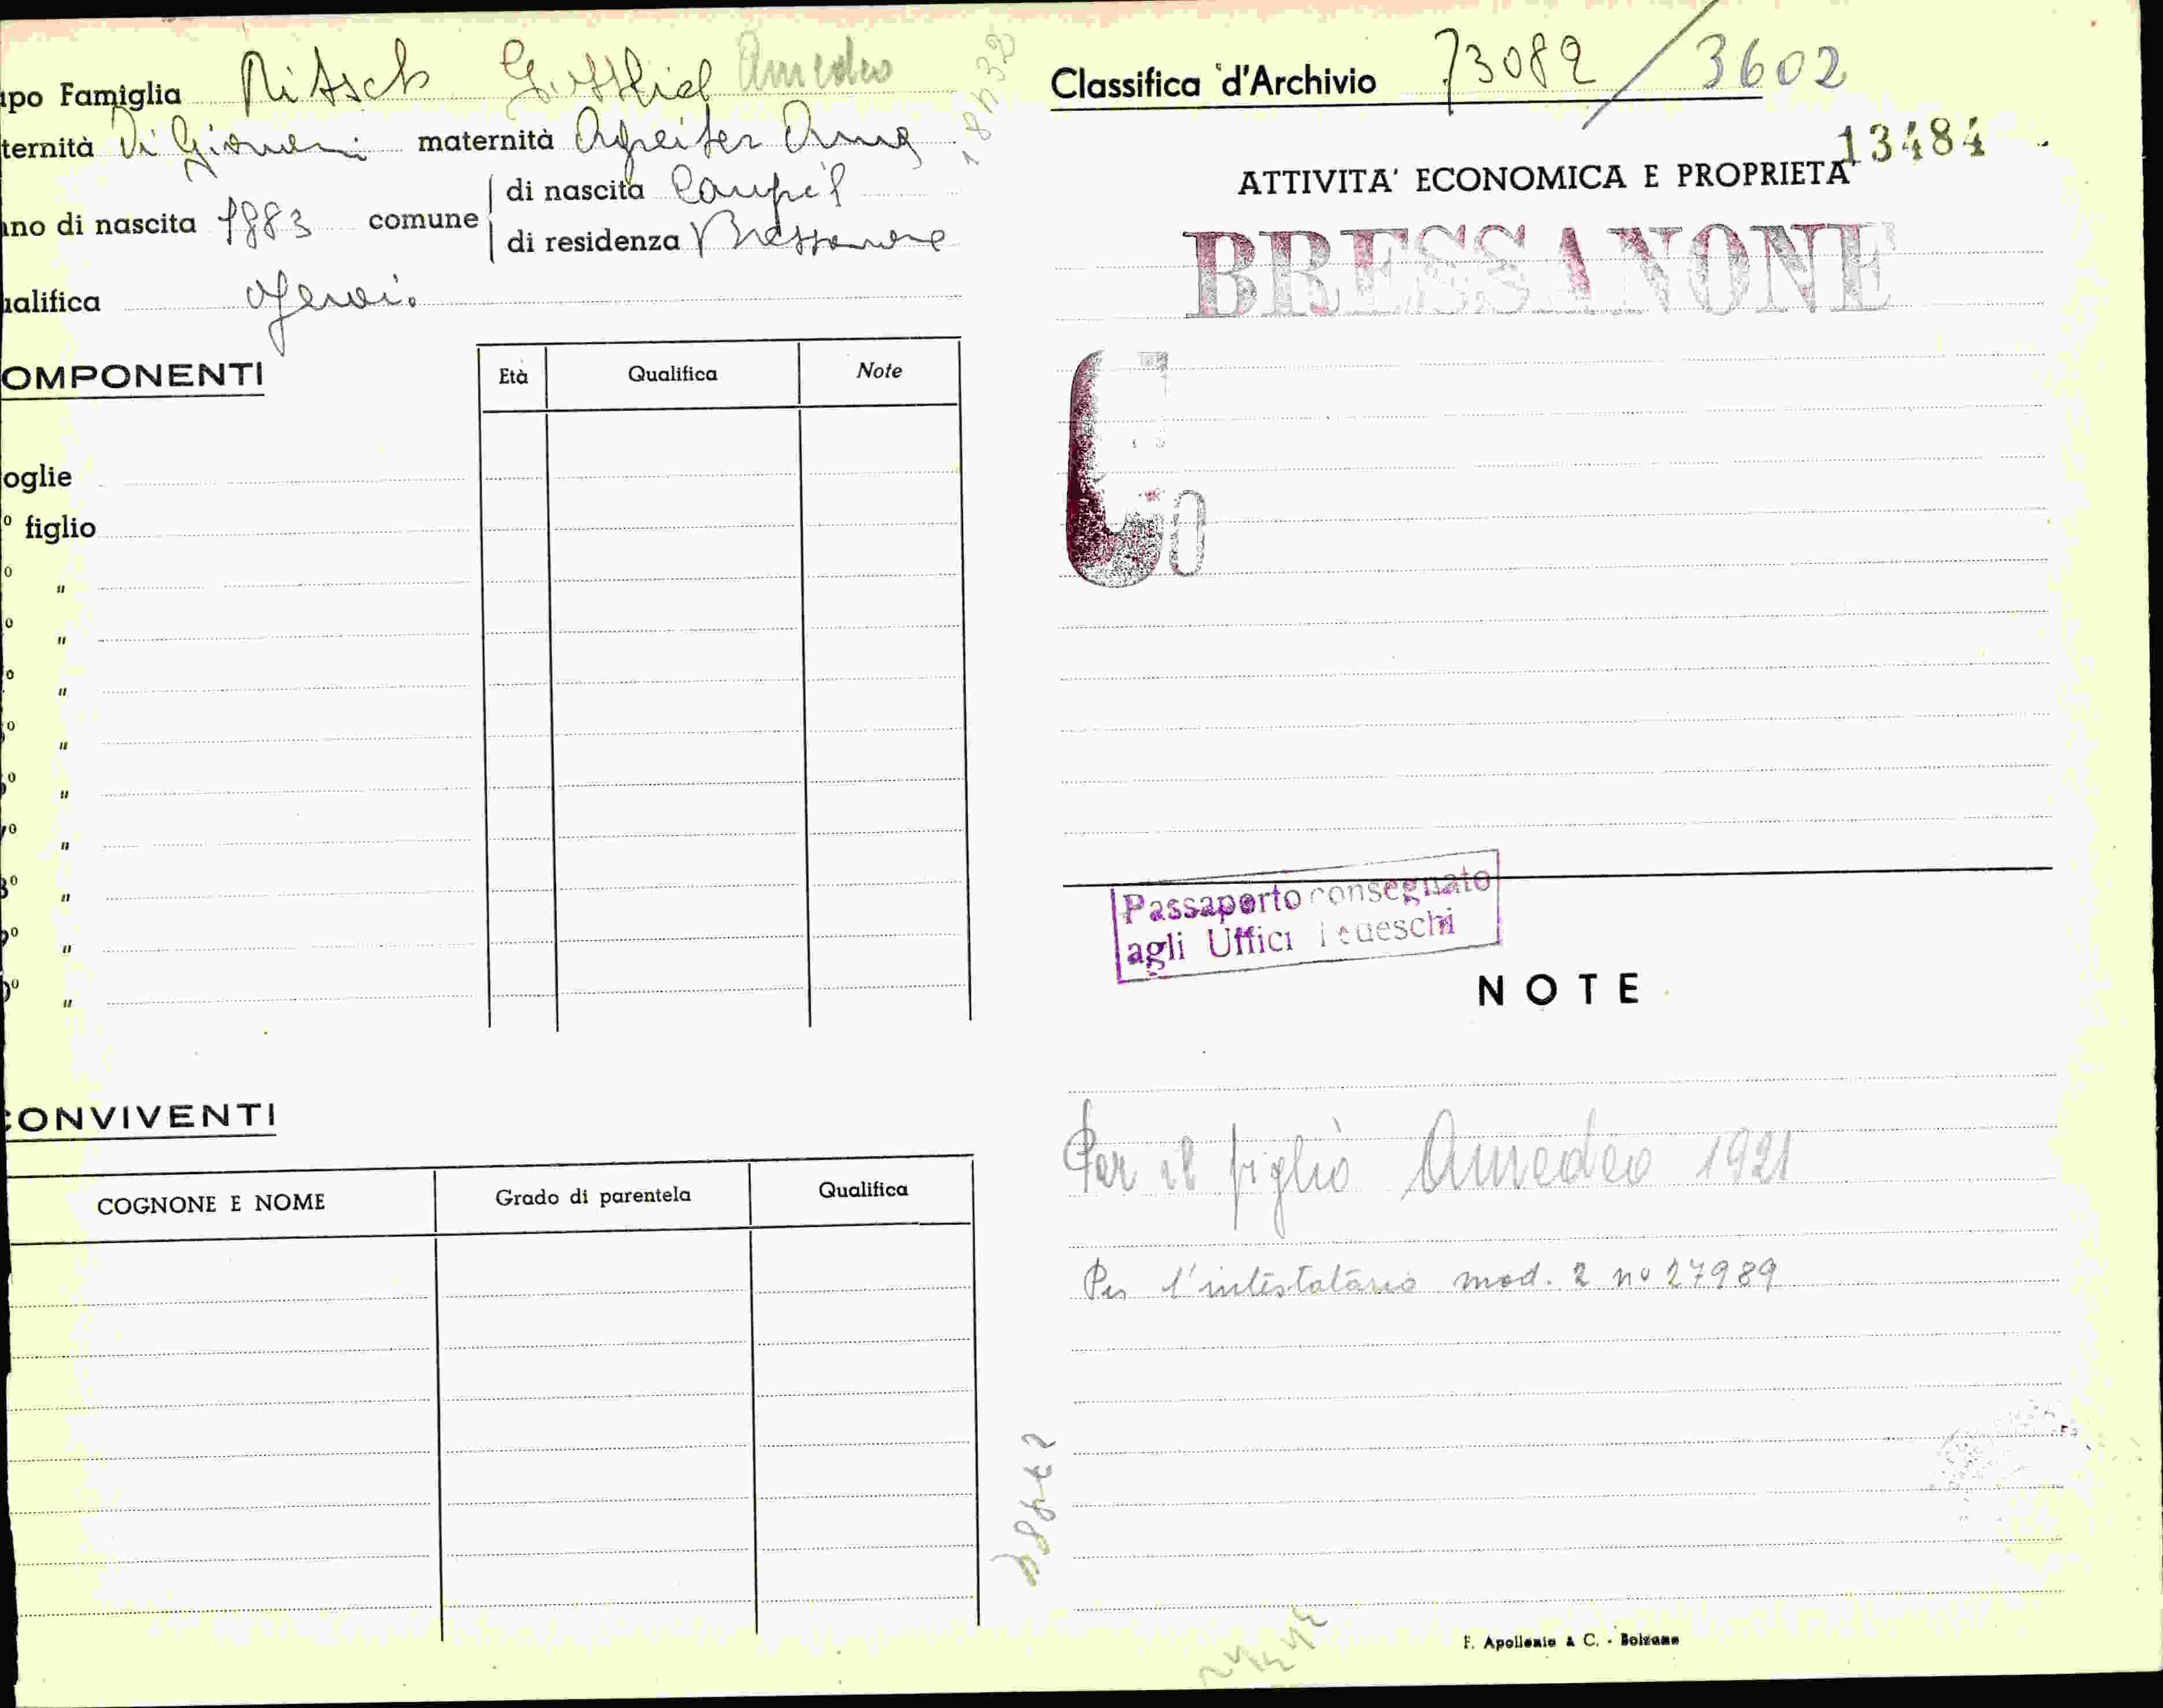 apo Famiglia Nitsch Gottlieb Amedeo
ternità Di Giovanni maternità Agreiter Anna
nno di nascita 1883 comune di nascita Campil
di residenza Bressanone
ualifica operaio
OMPONENTI
Età Qualifica Note
oglie
° figlio
° "
° "
° "
° "
° "
7° "
8° "
9° "
0° "
CONVIVENTI
COGNONE E NOME Grado di parentela Qualifica
Classifica d'Archivio 73082 / 3602
13484
ATTIVITA' ECONOMICA E PROPRIETA'
BRESSANONE
Passaporto consegnato
agli Uffici Tedeschi
NOTE
Per il figlio Amedeo 1921
Per l'intestatario mod. 2 no 27989
F. Apollonio & C. - Bolzano